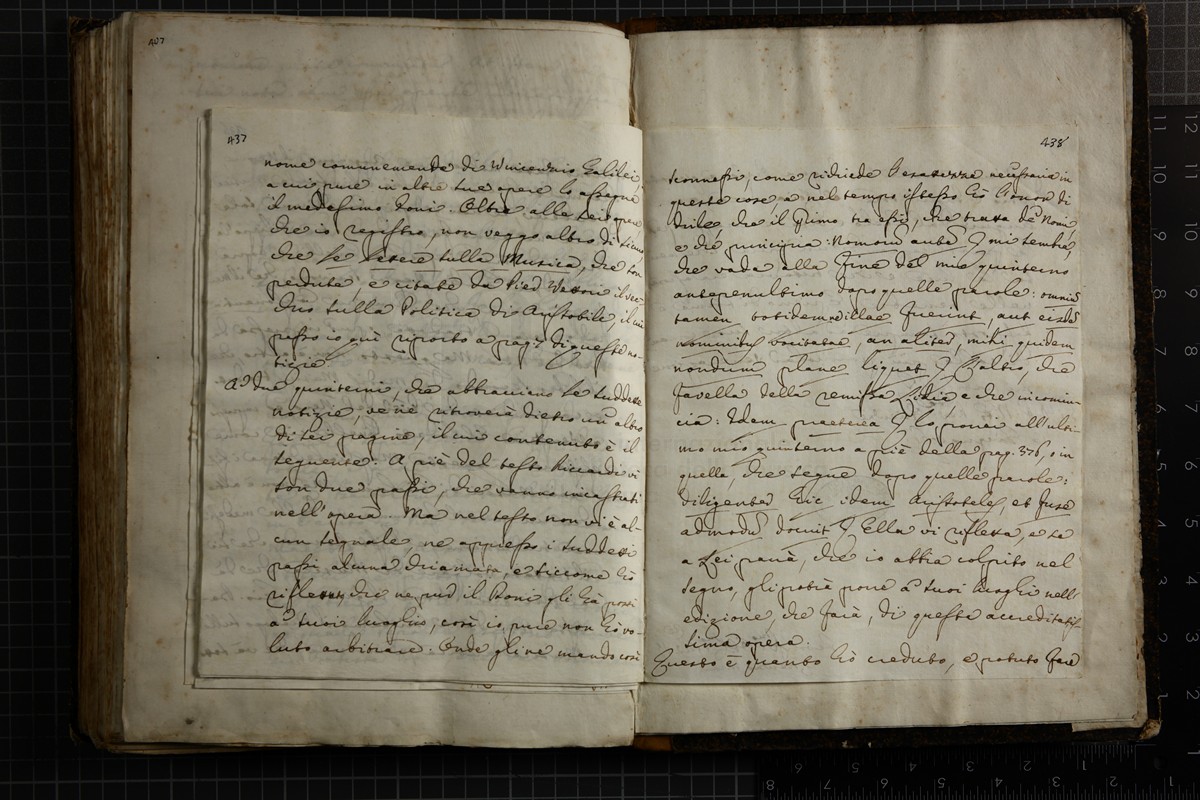 407
437
nome comunemente di Vincenzio Galilei,
a cui pure in altre sue opere lo assegna
il medesimo Doni. Oltre alle sei opere
che io registro, non veggo altro di lui,
che se
perduta, è citata da Pier Vettori il vec-
chio sulla Politica di Aristotile, il cui
passo io quì riporto a pag: di queste no-
tizie.
A' due quinterni, che abbracciano le suddette
notizie, ve ne ritroverà dietro un altro
di sei pagine, il cui contenuto è il
seguente. A piè del testo Riccardi vi
son due passi, che vanno incastrati
nell'opera. Ma nel testo non vi è al-
cun segnale ne appresso i suddetti
passi alcuna chiamata, e siccome hò
riflettuto, che ne pur il Doni gli hà posti
a' suoi luoghi, così io pure non hò vo-
luto arbitrare. Onde gliene mando così
438
sconnessi, come richiede l'esattezza necessaria in
queste cose e nel tempo istesso hò l'onor di
dirle, che il primo tra essi, che tratta de' Nomi,
e che principia: Nomoru autẽ &c mi sembra,
che vada alla fine del mio quinterno
antepenultimo dopo quelle parole: omnia
tamen totidem illae fuerint, aut eisdẽ
nominibus vocitatae, an aliter, mihi quidem
nondum plane liquet &c L'altro, che
favella della remissa Lidia e che incomin-
cia: Idem praeterea &c lo porrei all'ulti-
mo mio quinterno a piè della pag: 376, o in
quella, che segue dopo quelle parole:
diligenter hic idem Aristoteles, et fuse
admodũ docuit &c Ella vi rifletta, e se
a Lei parrà, che io abbia colpito nel
segno, gli potrà porre a' suoi luoghi nell'
edizione, che farà, di questa accreditatis-
sima opera.
Questo è quanto hò creduto, e potuto fare